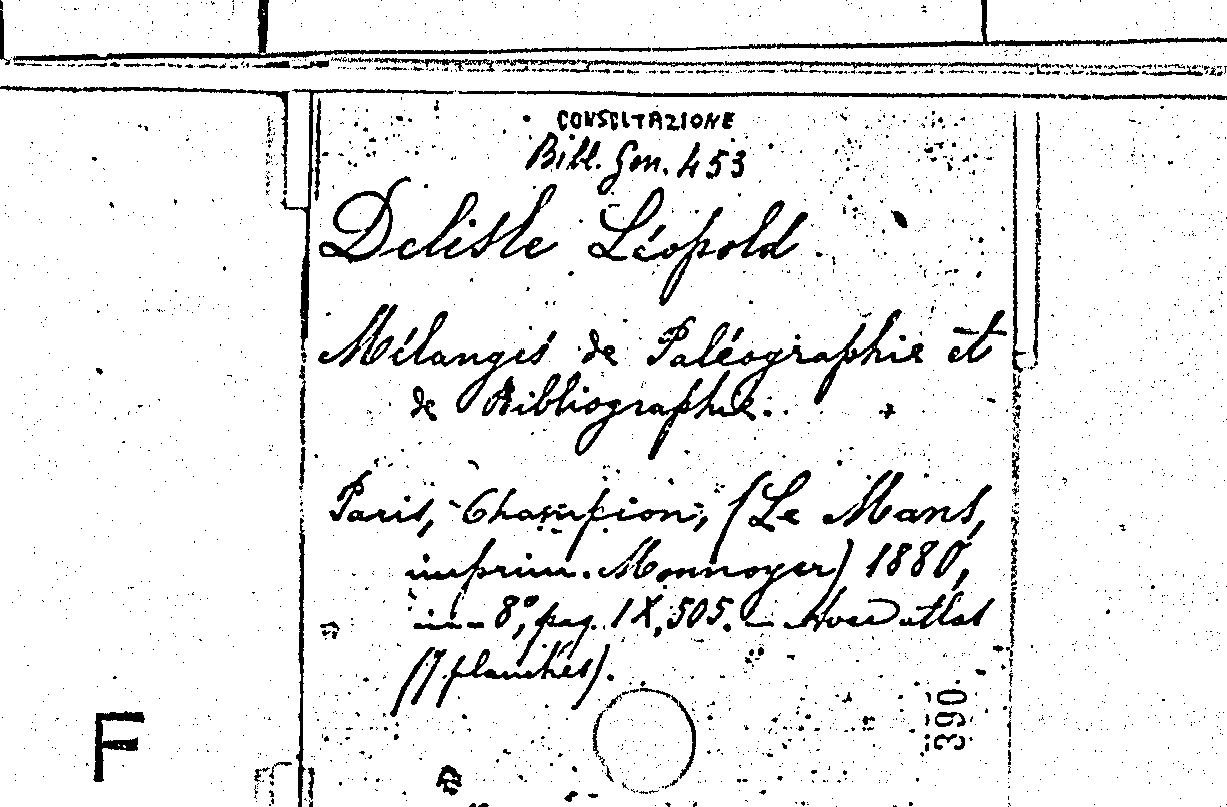 CONSULTAZIONE
Bibl. Gen. 453
Delisle Léopold
Mélanges de Paléographie et
de Bibliographie.
Paris, Champion, (Le Mans,
imprim. Monnoyer) 1880,
in-8°, pag. IX, 505. - Avec atlas
(7 planches).
390
F